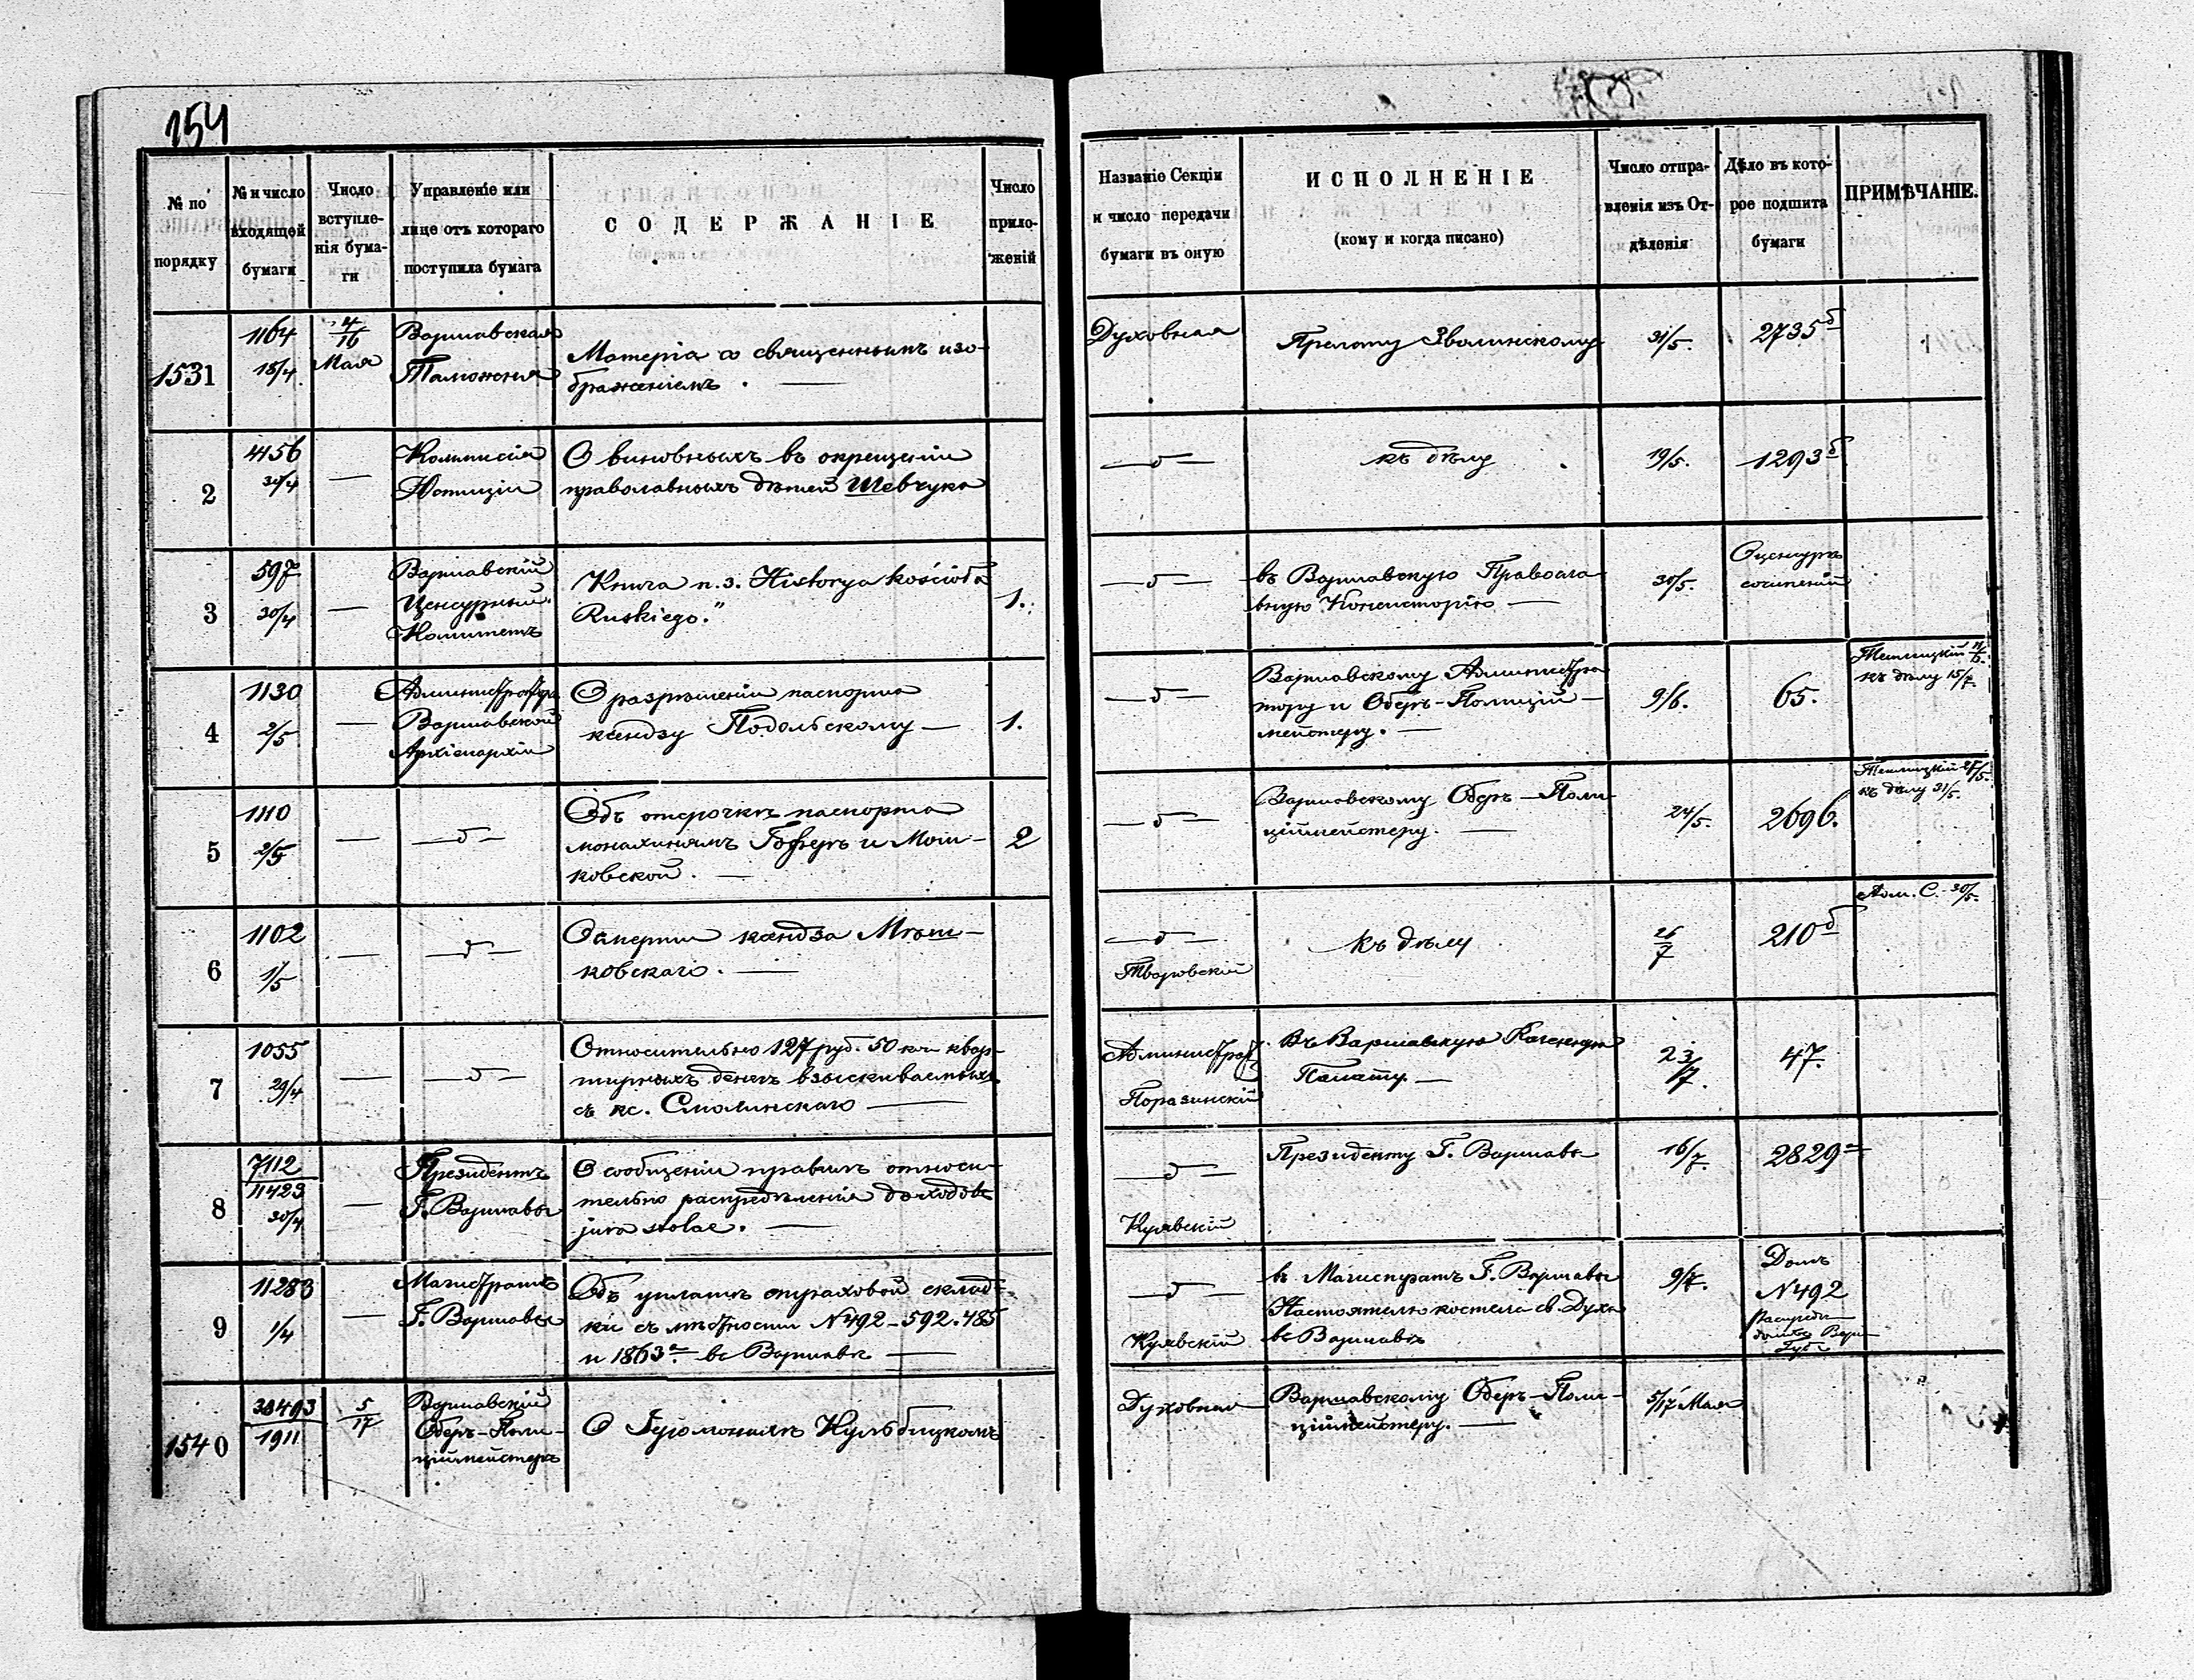 154
№ по порядку
№ и число входящей бумаги
Число вступле-нія бума-ги
Управленіе или лице отъ котораго поступила бумага
СОДЕРЖАНІЕ
Число прило-женій
Названіе Секціи и число передачи бумаги въ оную
ИСПОЛНЕНІЕ
(кому и когда писано)
Число отпра-вленія изъ От-дѣленія
Дѣло въ кото-рое подшита бумаги
ПРИМѢЧАНІЕ.
1531
1164
18/4.
4/16 Мая
Варшавская
Таможня
Матерія со священнымъ изо-
браженіемъ.
Духовная
Прелату Зволинскому
31/5.
2735 б
2
4156
30/4
—
Коммисія
Юстиціи
О виновныхъ въ окрещеніи
православныхъ дѣтей Шевчука
—б—
къ дѣлу
19/5.
1293 б
3
597
30/4
—
Варшавскій
Ценсурный
Комитетъ
Книга п. з. Historya kościoła
Ruskiego."
1.
—б—
въ Варшавскую Правосла
вную Консисторію —
30/5.
О ценсурѣ
сочиненій
4
1130
2/5
—
Администраторъ
Варшавской
Архіепархіи
О разрѣшеніи паспорта
ксендзу Подольскому —
1.
—б—
Варшавскому Администра
тору и Оберъ-Полицій—
мейстеру. —
9/6.
65.
къ дѣлу 15/7.
5
1110
2/5
—
—б—
Объ отсрочкѣ паспорта
монахинямъ Гоферъ и Мош-
ковской. —
2
—б—
Варшавскому Оберъ-Поли-
ціймейстеру. —
24/5.
2696.
27/5
къ дѣлу 31/5.
6
1102
1/5
—
—б—
О смерти ксендза
ковскаго. —
—б—
Творовскій
къ дѣлу
26/7
210 б
Адм. С. 30/5.
7
1055
29/4
—
—б—
Относительно 127 руб. 50 коп. квар-
тирныхъ денегъ взыскиваемыхъ
съ кс. Смолинскаго —
Администрат.
Поразинскій
Въ Варшавскую Казенную
Палату. —
23/7.
47.
8
7112
11423
30/4
—
Президентъ
Г. Варшавы
О сообщеніи правилъ относи-
тельно распредѣленія доходовъ
jura stolae. —
—б—
Куявскій
Президенту Г. Варшавы
16/7.
2829 а
9
11283
1/4
—
Магистратъ
Г. Варшавы
Объ уплатѣ страховой склад-
ки съ мѣстности № 492-592.485
и 1863 а. въ Варшавѣ —
—б—
Куявскій
въ Магистратъ Г. Варшавы
Настоятелю костела св. Духа
въ Варшавѣ
9/7.
Домъ
№ 492
1540
38493
1911
5/17
Варшавскій
Оберъ-Поли-
ціймейстеръ
О
Духовная
Варшавскому Оберъ-Поли-
ціймейстеру. —
5/17 Мая